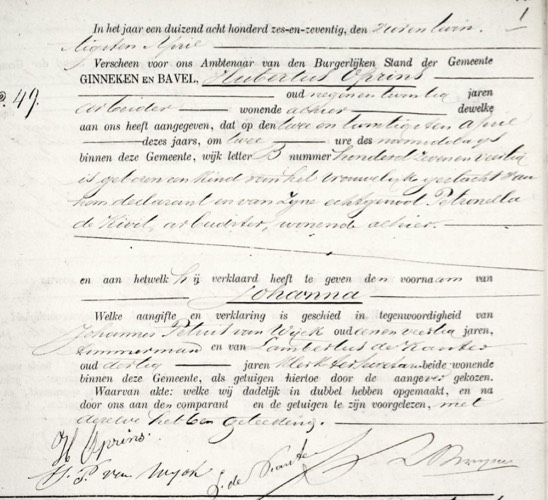 1
In het jaar een duizend acht honderd zes-en-zeventig, den vierentwin
tigsten April
Verscheen voor ons Ambtenaar van den Burgerlijken Stand der Gemeente
GINNEKEN EN BAVEL, Hubertus Oprins
oud negenentwintig jaren
No. 49. arbeider wonende alhier dewelke
aan ons heeft aangegeven, dat op den twee en twintigsten April
dezes jaars, om twee ure des namiddags
binnen deze Gemeente, wijk letter B nummer honderd zevenenveertig
is geboren een kind van het vrouwelijke geslacht van
hem declarant en van zijne echtgenoot Petronella
de Kivit, arbeidster, wonende alhier.
en aan hetwelk hij verklaard heeft te geven den voornaam van
Johanna
Welke aangifte en verklaring is geschied in tegenwoordigheid van
Johannes Petrus van Wijck oud eenenveertig jaren,
timmerman en van Lambertus de Kanter
oud dertig jaren Klerk ter Secretarie beide wonende
binnen deze Gemeente, als getuigen hiertoe door de aangever gekozen.
Waarvan akte: welke wij dadelijk in dubbel hebben opgemaakt, en na
door ons aan den comparant en de getuigen te zijn voorgelezen, met
dezelve hebben geteekend.
H Oprins.
J. P. van Wijck L. de Kanter